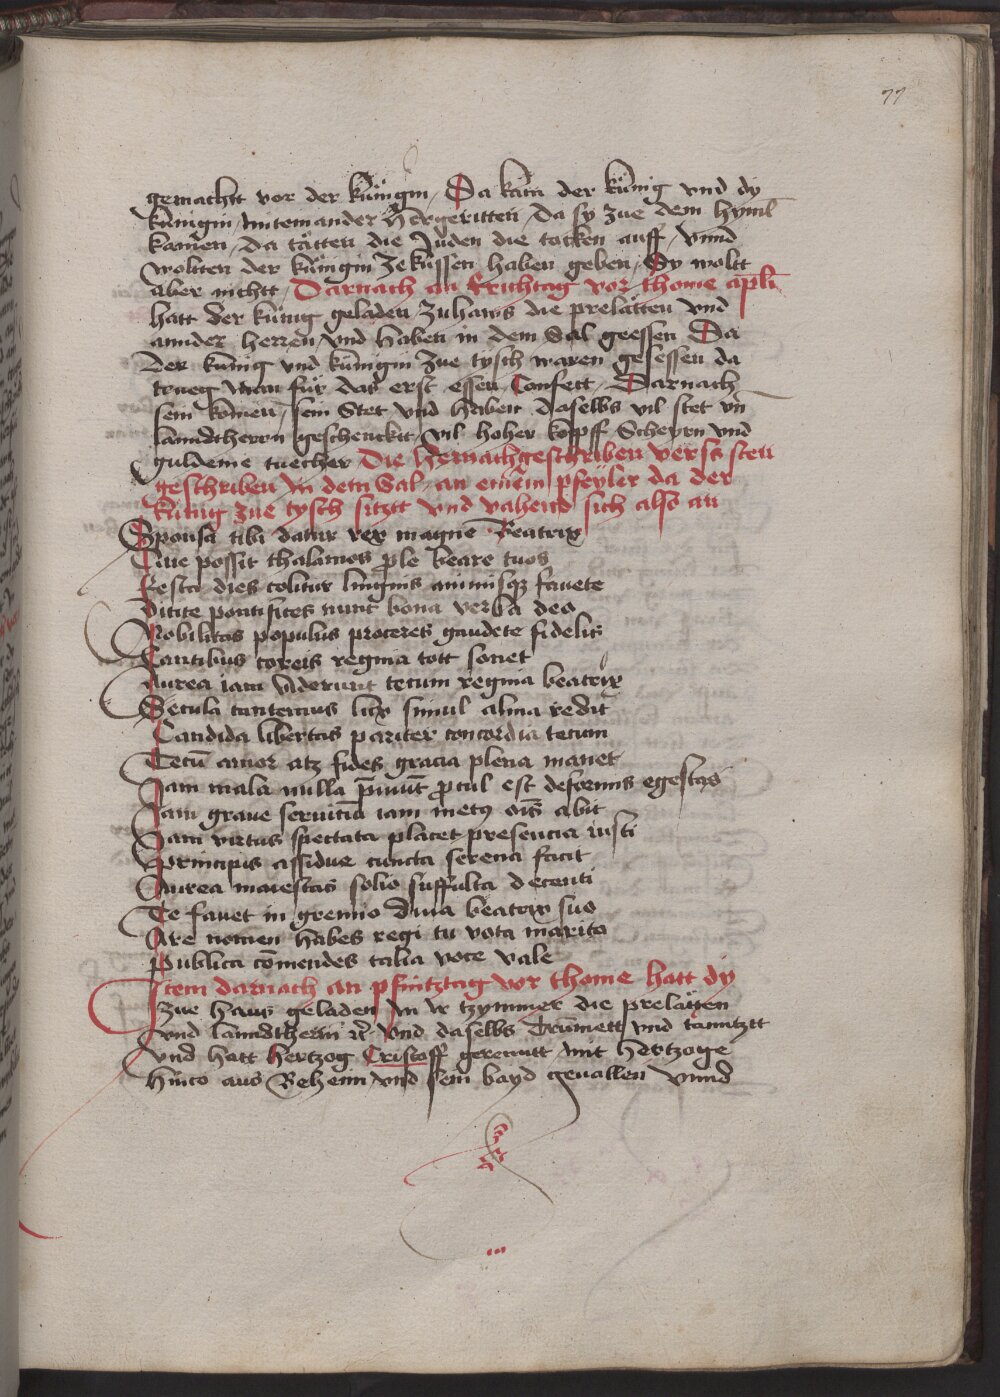 77
gemachtt vor der künigin / Da kam der künig vnd dy
künigin mitemander hergeritten / Da sy zue dem hymł
kamen / da tätten die Juden die tacken auff / vnnd
wolten der künigin zeküssen haben geben / Sy wolt
aber nichtt / Darnach an Erichtag vor thome apl̄i
hatt der künig geladen zuhaws die prelaten vnd
annder herren vnd haben in dem Sal geessen Da
der künig vnd künigin zue tysch waren gesessen da
trueg man für das erst essen Confett / Darnach
sein komen / sein Stet vnd haben daselbs vil stet vn̄
lanndtherrn geschenckt vil hoher kopff Scheyrn vnd
guldeine tuecher Die hernachgeschriben verss sten
geschriben in dem Sal an einem pfeyler da der
künig zue tysch sitzt vnd vahend sich also an
Sponsa tibi datur rex magne Beatrix
Que possit thalamos ꝓle beare tuos
Festa dies colitur linguis animisqꝫ fauete
Dicite pontifices nunc bona verba deo
Nobilitas populus proceres gaudete fidelis
Cantibus coreis regina tott sonet
Aurea iam viderunt tecum regina beatrix
Secula tanterius lux simul alma redit
Candida libertas pariter concordia tecum
Tecū amor atz fides gracia plena manet
Jam mala nulla p̄munt ꝓcul est deformis egestas
Jam graue seruitiū iam metꝰ oīs abit
Jam virtus spectata placet presencia iusti
Principis assidue cuncta serena facit
Aurea maiestas solio suffulta decenti
Te fauet in gremio diua beatrix suo
Are nomen habes regi tu vota marita
Publica cōmendes talia voce vale
Item darnach an pfintztag vor thome hatt dy
zue haus geladen in ir tzymmer die prelaten
vnd lanndtherrn ꝛc̄ vnd daselbs Trumett vnd tanntztt
vnd hatt hertzog Cristoff gerenntt mit hertzoge
hinco aus Behein vnd sein bayd geuallen vnnd